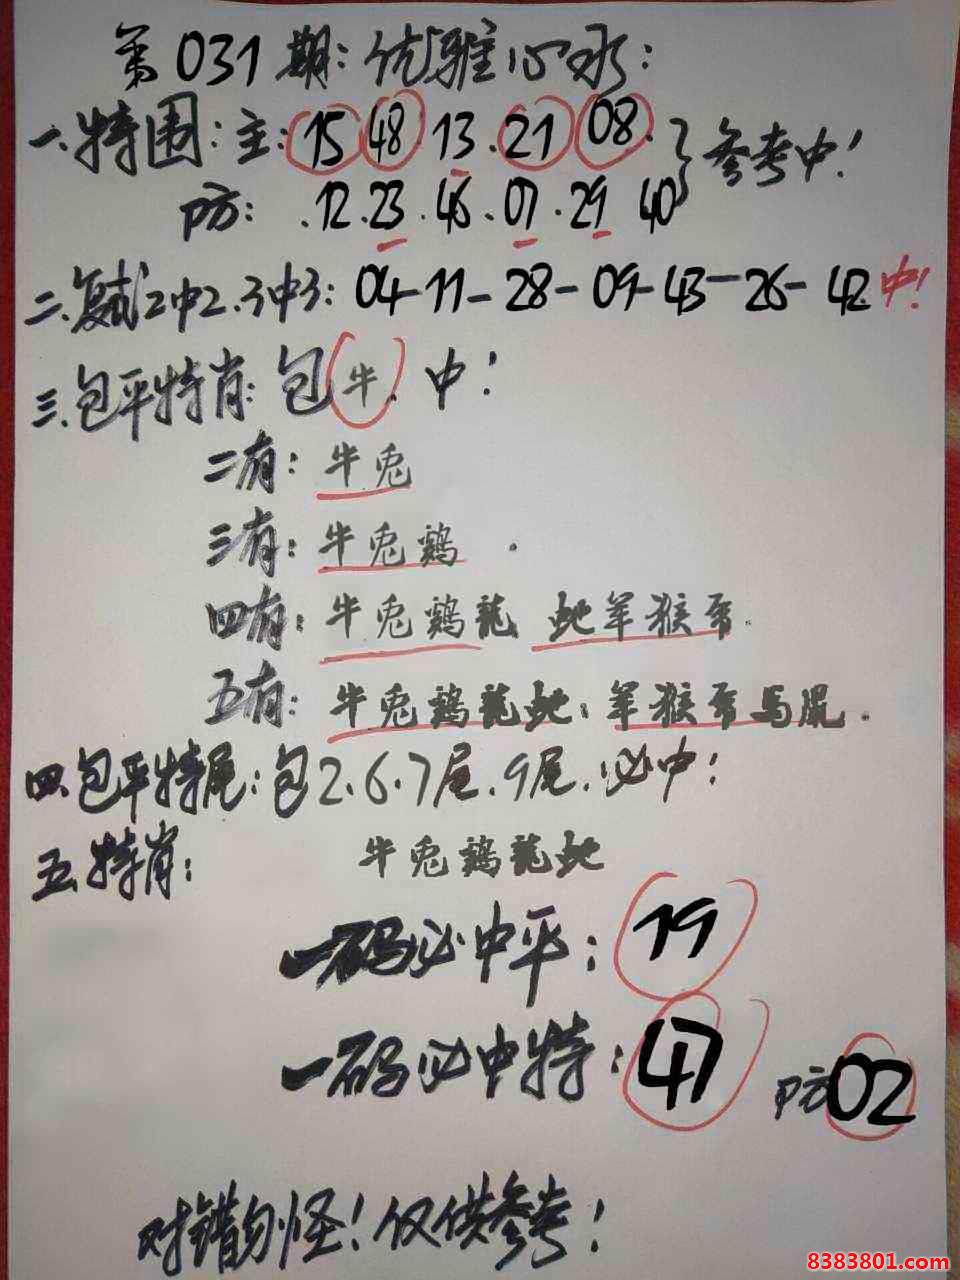 第031期:优雅心水:
一.特围:主:15 48·13·21 08·
防:·12·23·46·07·29 40 } 参考中!
二.复试2中2.3中3:04-11-28-09-43-26-42中!
三.包平特肖:包牛.中!
二有:牛兎
三有:牛兎鷄.
四有:牛兎鷄龍 蛇羊猴
五有:牛兎鷄龍蛇:羊猴 馬鼠.
四.包平特尾:包2.6.7尾.9尾.必中!
五.特肖: 牛兎鷄龍蛇
一码必中平:19
一码必中特:47 防02
对错勿怪!仅供参考!
8383801.com